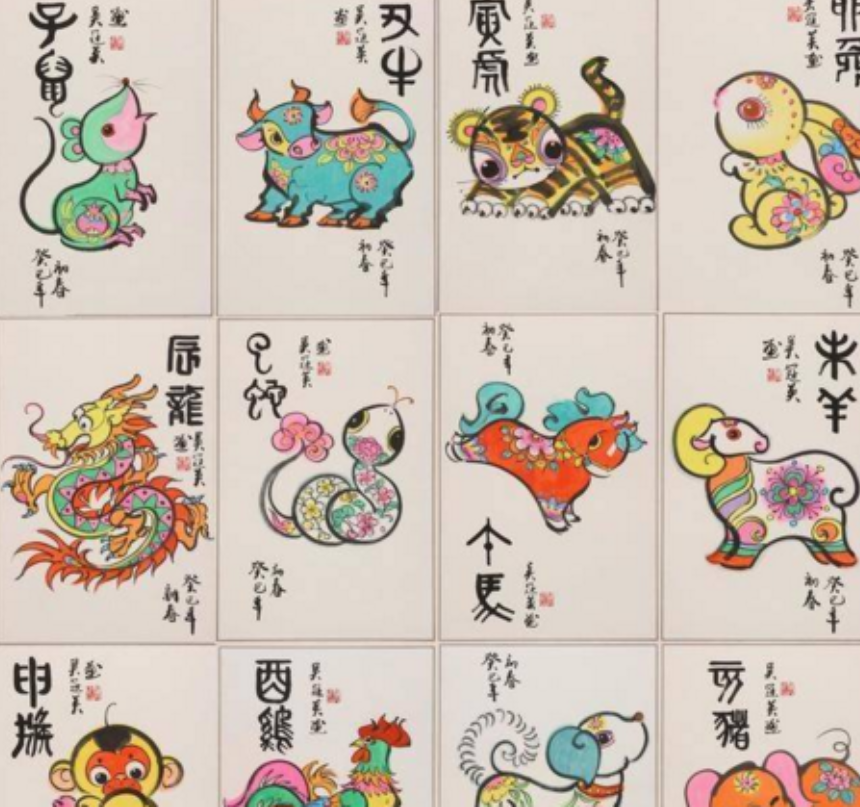 子鼠
吴冠英画
癸巳年
初春
丑牛
吴冠英画
癸巳年
初春
寅虎
吴冠英画
癸巳年
初春
卯兔
吴冠英画
癸巳年
初春
辰龍
吴冠英画
癸巳年
初春
巳蛇
吴冠英画
癸巳年
初春
癸巳年
初春
午馬
吴冠英画
未羊
吴冠英画
癸巳年
初春
申猴
吴冠英画
酉鷄
吴冠英画
癸巳年
初春
亥豬
吴冠英画